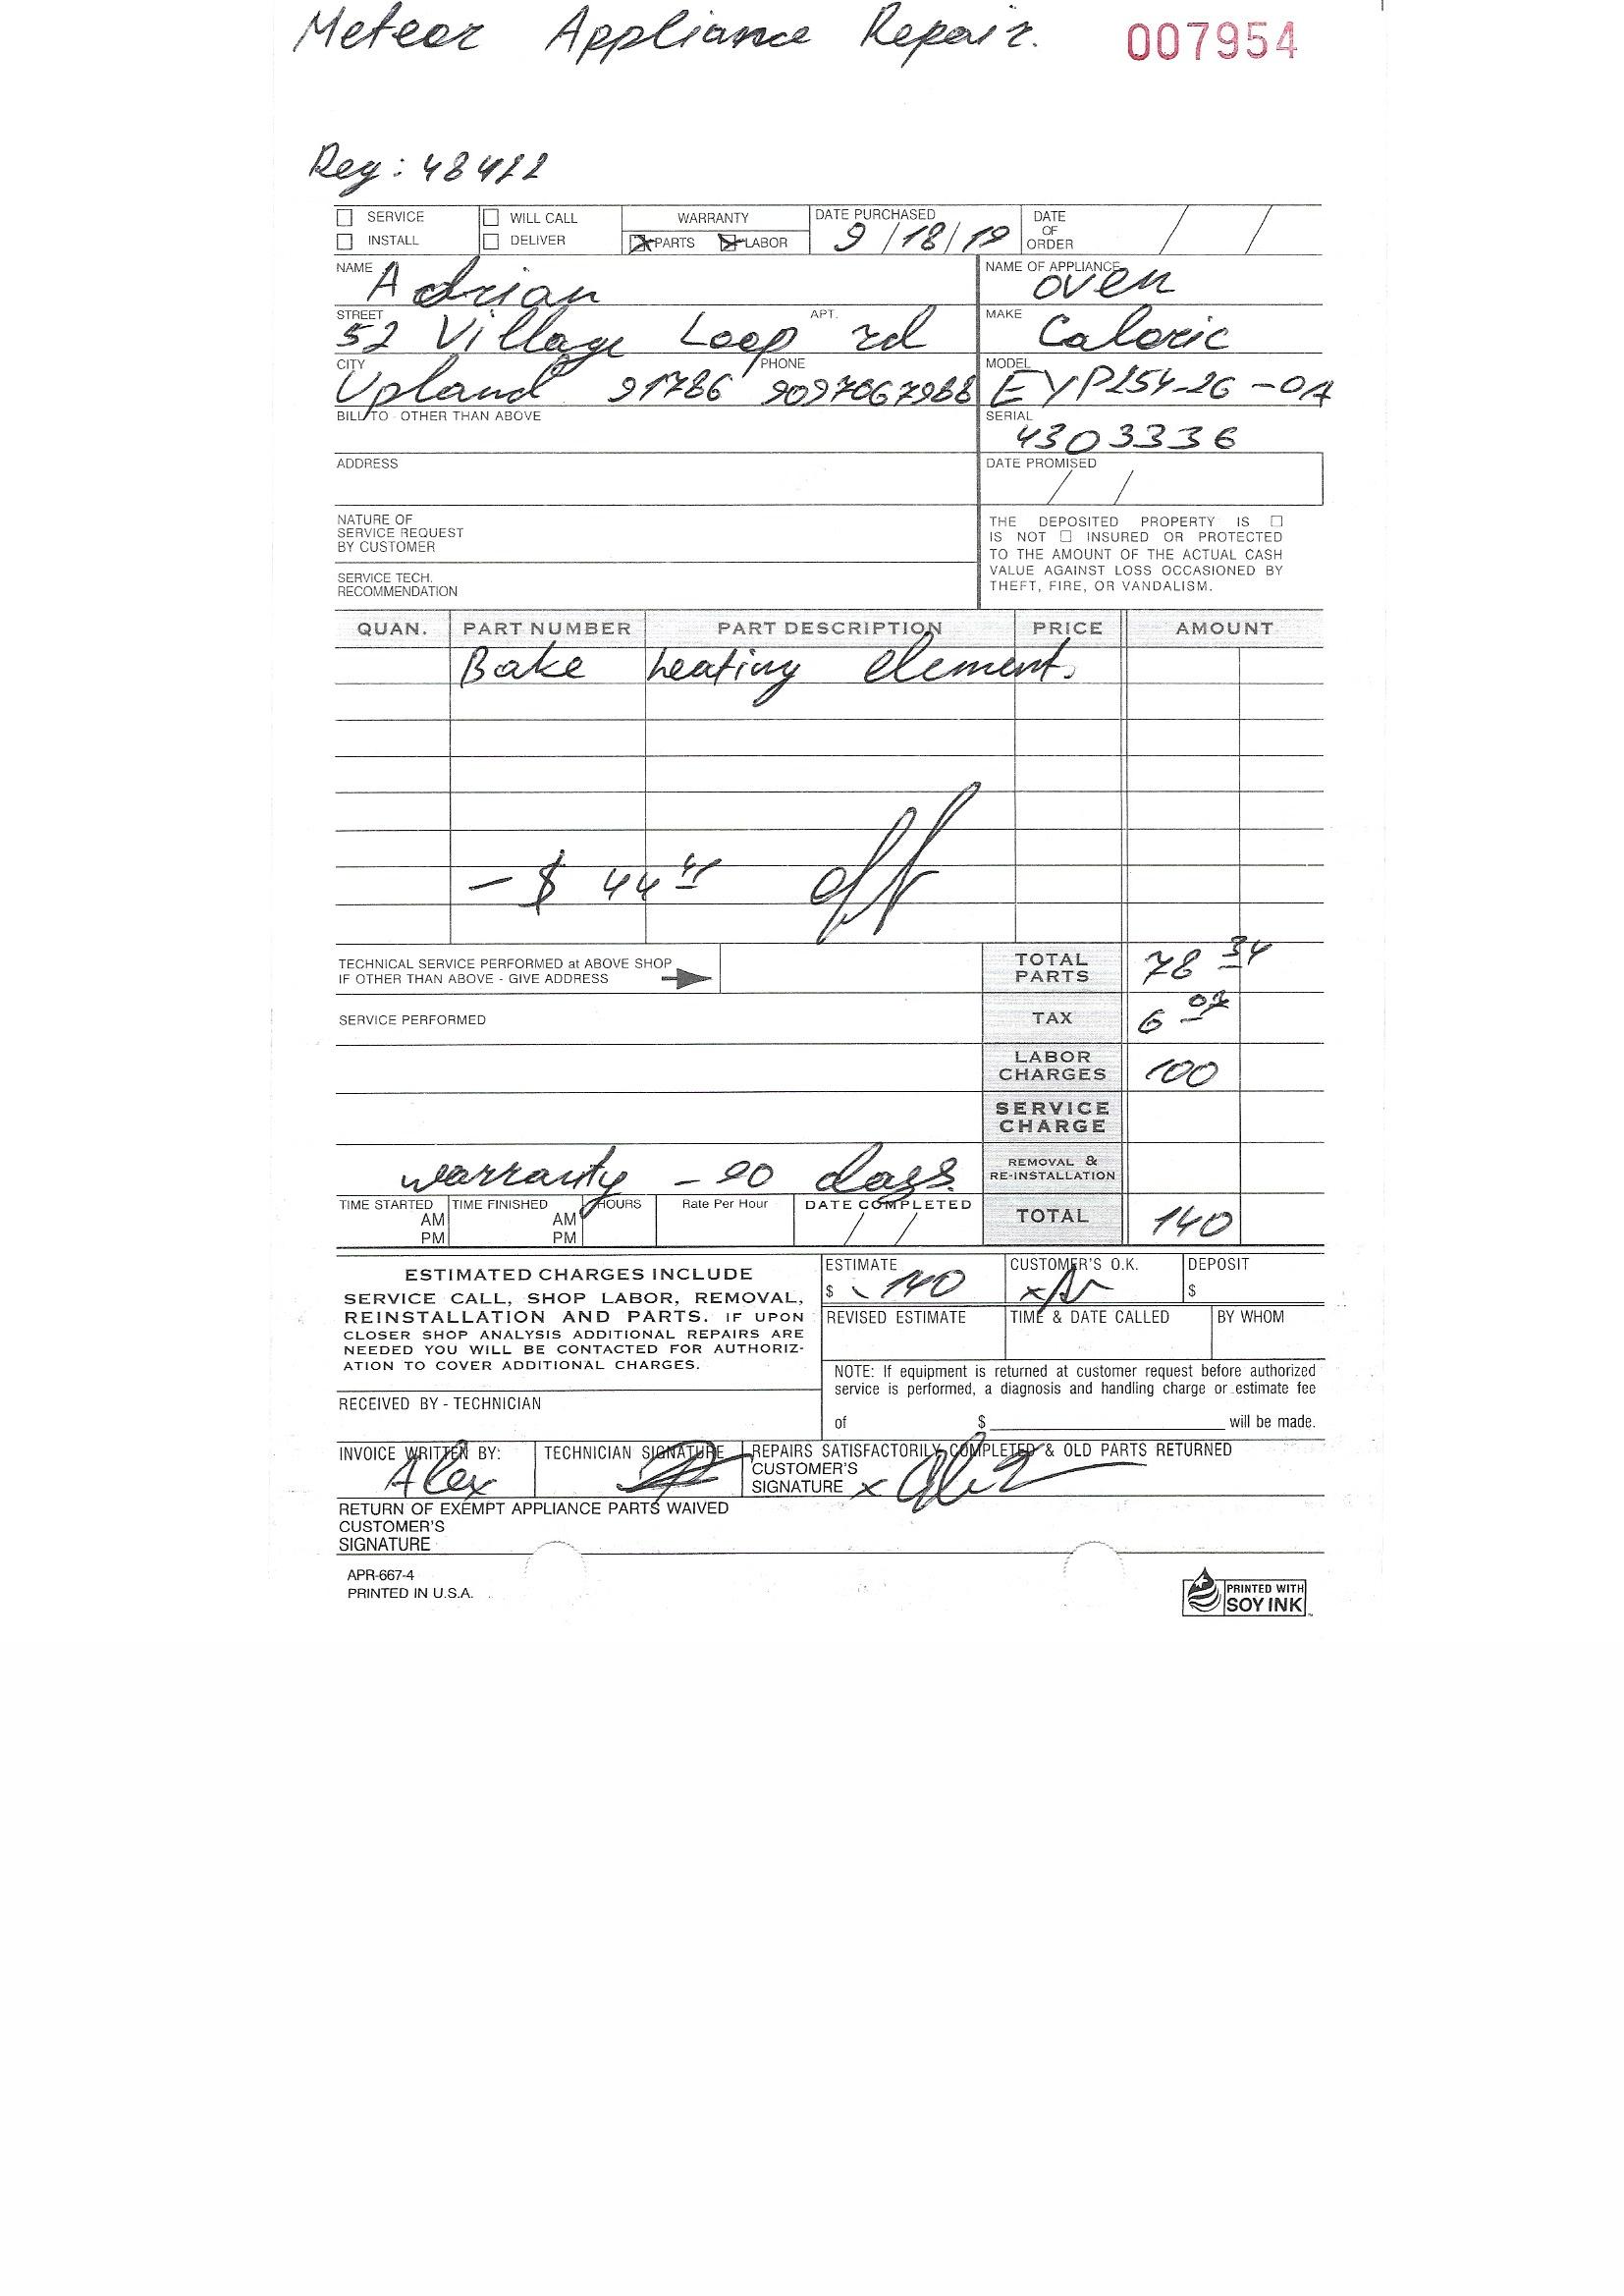 Meteor Appliance Repair. 007954
Reg: 48422
SERVICE WILL CALL WARRANTY DATE PURCHASED DATE OF ORDER
INSTALL DELIVER PARTS LABOR 9/18/19 / /
NAME Adrian NAME OF APPLIANCE oven
STREET 52 Village Loop rd APT. MAKE Caloric
CITY Upland 91786 PHONE 9097067988 MODEL EYP254-26-0A
BILL TO - OTHER THAN ABOVE SERIAL 4303336
ADDRESS DATE PROMISED / /
NATURE OF
SERVICE REQUEST
BY CUSTOMER
SERVICE TECH.
RECOMMENDATION
THE DEPOSITED PROPERTY IS
IS NOT INSURED OR PROTECTED
TO THE AMOUNT OF THE ACTUAL CASH
VALUE AGAINST LOSS OCCASIONED BY
THEFT, FIRE, OR VANDALISM.
QUAN. PART NUMBER PART DESCRIPTION PRICE AMOUNT
Bake heating element.
- $ 44 41 off
TECHNICAL SERVICE PERFORMED at ABOVE SHOP
IF OTHER THAN ABOVE - GIVE ADDRESS
TOTAL PARTS 78 34
SERVICE PERFORMED TAX 6 07
LABOR CHARGES 100
SERVICE CHARGE
warranty - 90 days. REMOVAL & RE-INSTALLATION
TIME STARTED AM PM TIME FINISHED AM PM HOURS Rate Per Hour DATE COMPLETED / / TOTAL 140
ESTIMATED CHARGES INCLUDE
SERVICE CALL, SHOP LABOR, REMOVAL,
REINSTALLATION AND PARTS. IF UPON
CLOSER SHOP ANALYSIS ADDITIONAL REPAIRS ARE
NEEDED YOU WILL BE CONTACTED FOR AUTHORIZ-
ATION TO COVER ADDITIONAL CHARGES.
ESTIMATE $ 140 CUSTOMER'S O.K. x DEPOSIT $
REVISED ESTIMATE TIME & DATE CALLED BY WHOM
NOTE: If equipment is returned at customer request before authorized
service is performed, a diagnosis and handling charge or estimate fee
of $ will be made.
RECEIVED BY - TECHNICIAN
INVOICE WRITTEN BY: Alex TECHNICIAN SIGNATURE REPAIRS SATISFACTORILY COMPLETED & OLD PARTS RETURNED
CUSTOMER'S
SIGNATURE x
RETURN OF EXEMPT APPLIANCE PARTS WAIVED
CUSTOMER'S
SIGNATURE
APR-667-4
PRINTED IN U.S.A.
PRINTED WITH
SOY INK